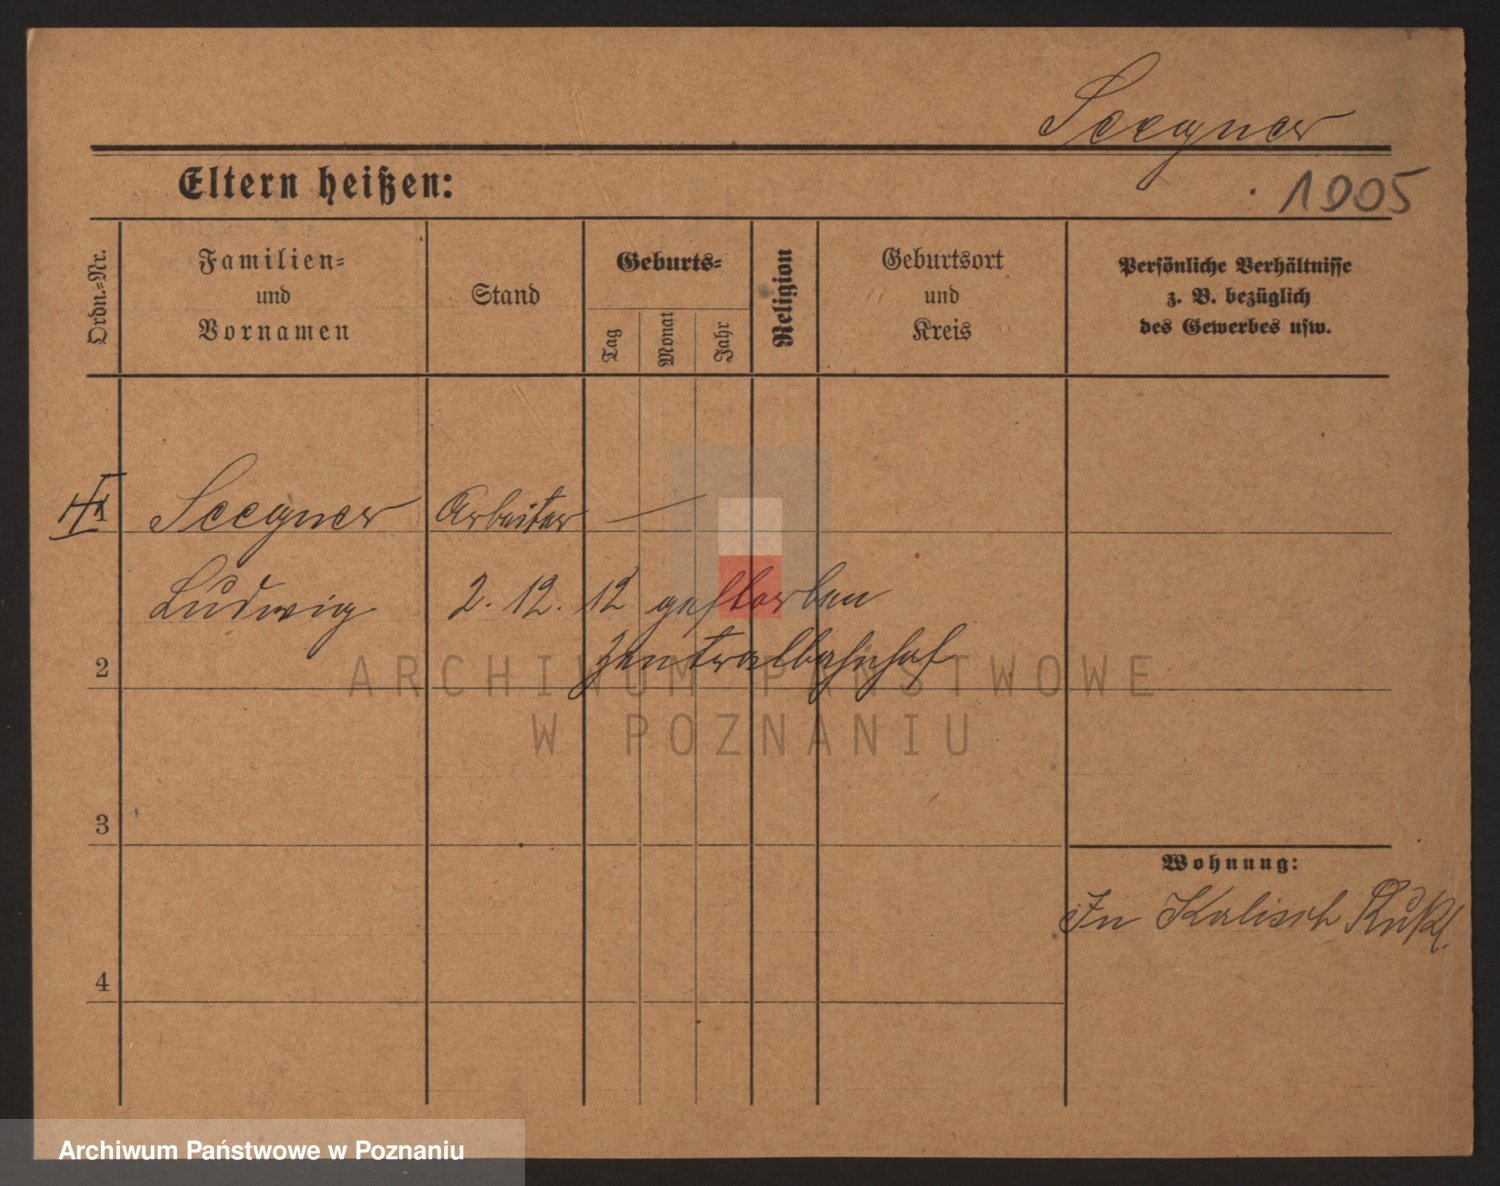 Seegner
Eltern heißen:
1005
Ordn.-Nr.
Familien-
und
Vornamen
Stand
Geburts-
Tag
Monat
Jahr
Religion
Geburtsort
und
Kreis
Persönliche Verhältnisse
z. B. bezüglich
des Gewerbes usw.
1
Seegner Arbeiter —
Ludwig 2. 12. 12 gestorben
Zentralbahnhof
2
3
4
Wohnung:
In Kalisch
ARCHIWUM PAŃSTWOWE
W POZNANIU
Archiwum Państwowe w Poznaniu